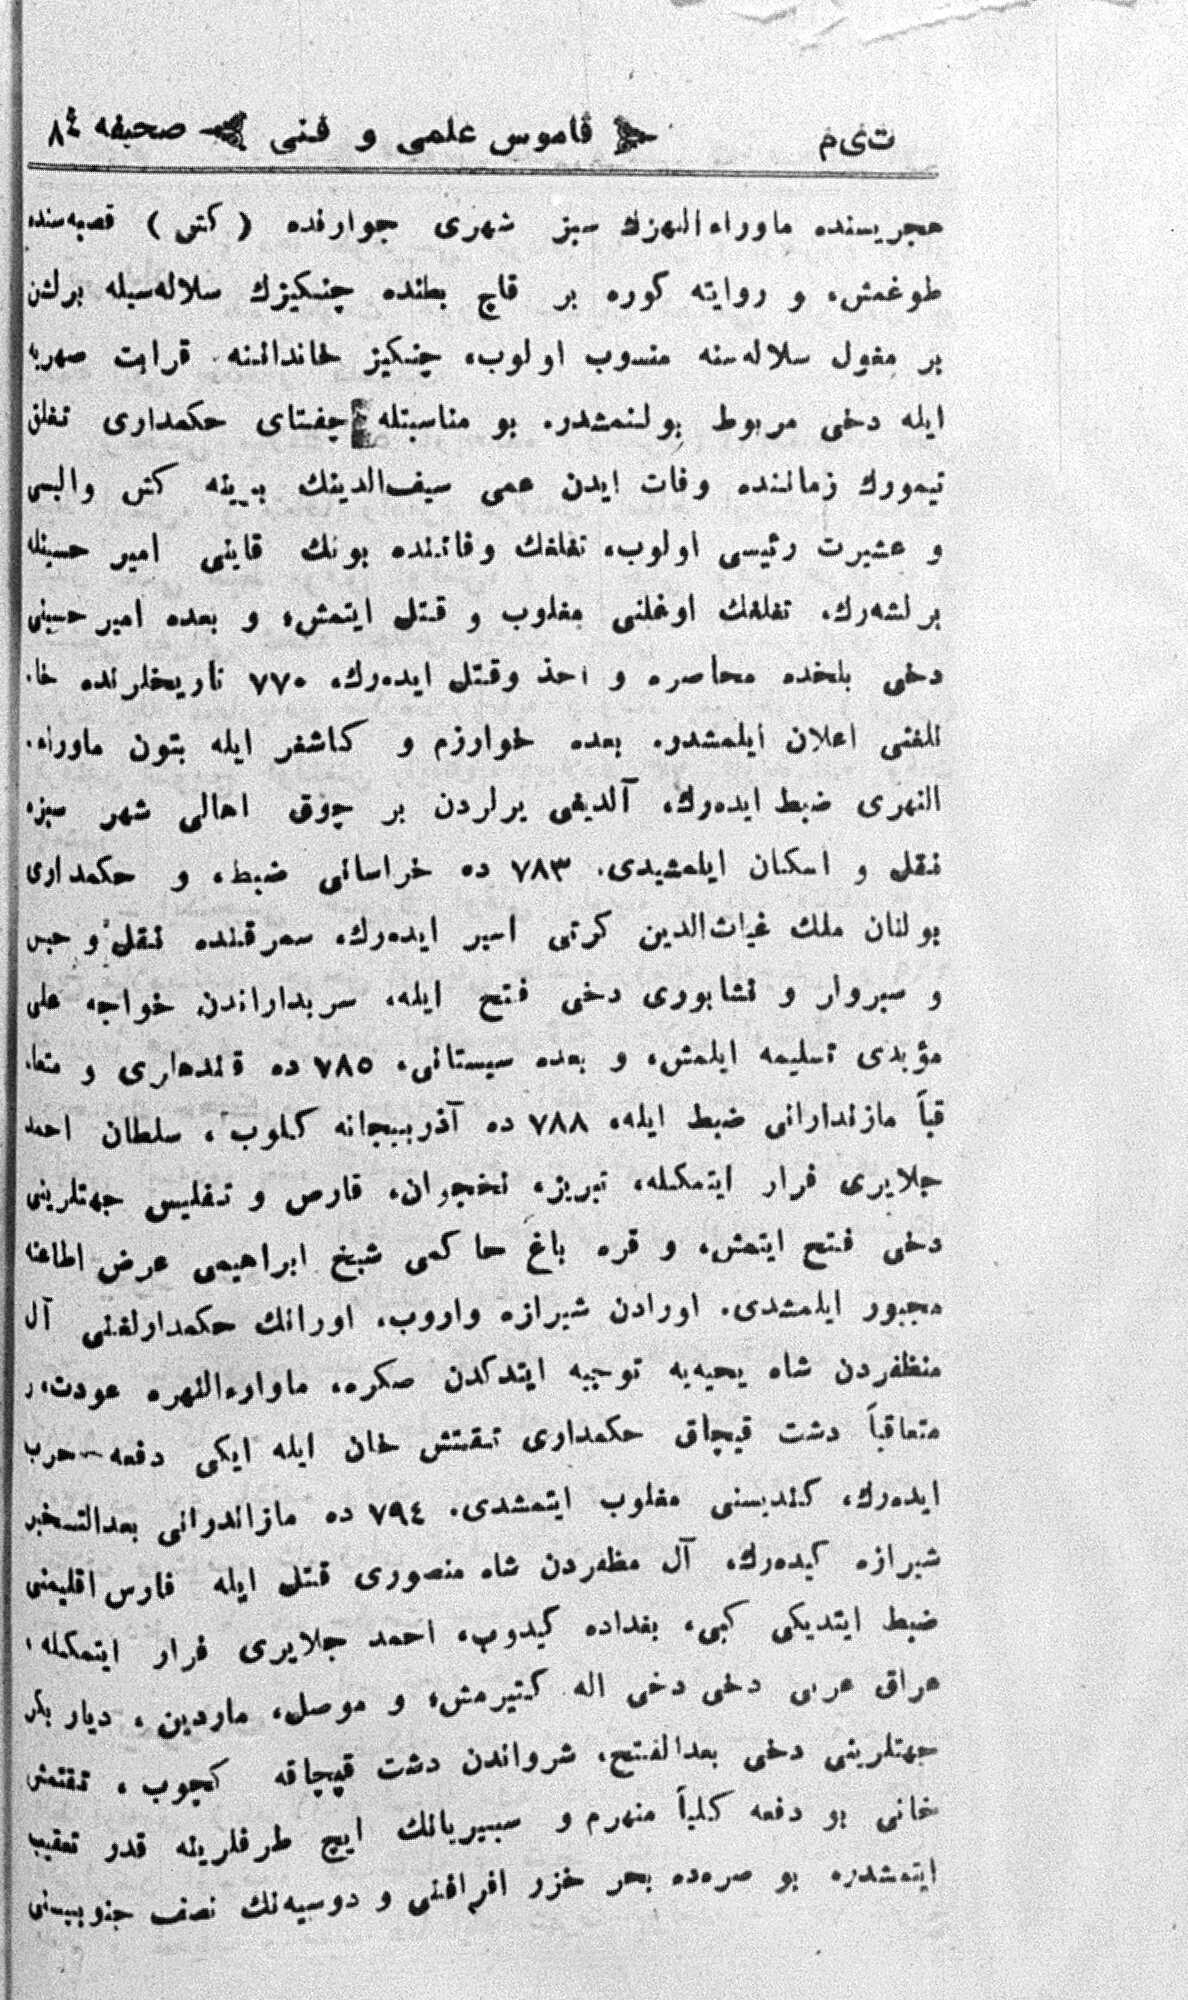 ت‌ی‌م قاموس علمی و فنی صحیفه ٨٤
هجریسنده ماوراء النهرك سبز شهری جوارنده ( كش ) قصبه‌سنده
طوغمش، و روایته كوره بر قاچ بطنده چنكیزك سلاله‌سیله برلشن
بر مغول سلاله‌سنه منسوب اولوب، چنكیز خاندانینه قرابت صهریه
ایله دخی مربوط بولنمشدر. بو مناسبتله چغتای حكمداری تغلق
تیمورك زماننده وفات ایدن عمی سیف‌الدینك یرینه كش والیسی
و عشیرت رئیسی اولوب، تغلقك وفاتنده بونك قاینی امیر حسینله
برلشه‌رك، تغلقك اوغلنی مغلوب و قتل ایتمش، و بعده امیر حسینی
دخی بلخده محاصره و اخذ وقتل ایده‌رك، ٧٧٠ تاریخلرنده خا.
نلغنی اعلان ایلمشدر. بعده خوارزم و كاشغر ایله بتون ماوراء.
النهری ضبط ایده‌رك، آلدیغی یرلردن بر چوق اهالی شهر سبزه
نقل و اسكان ایلمشیدی. ٧٨٣ ده خراسانی ضبط، و حكمداری
بولنان ملك غیاث‌الدین كرتی اسیر ایده‌رك، سمرقنده نقل و حبس
و سبزوار و نشابوری دخی فتح ایله، سربداراندن خواجه علی
مؤیدی تسلیمه ایلمش، و بعده سیستانی، ٧٨٥ ده قندهاری و متعا.
قباً مازندارانی ضبط ایله، ٧٨٨ ده آذربیجانه كلوب، سلطان احمد
جلایری فرار ایتمكله، تبریز، نخجوان، قارص و تفلیس جهتلرینی
دخی فتح ایتمش، و قره باغ حاكمی شیخ ابراهیمی عرض اطاعته
مجبور ایلمشدی. اورادن شیرازه واروب، اورانك حكمدارلغنی آل
منظفردن شاه یحیه‌یه توجیه ایتدكدن صكره، ماواره‌النهره عودت، و
متعاقباً دشت قپچاق حكمداری تقتش خان ایله ایكی دفعه حرب
ایده‌رك، كندیسنی مغلوب ایتمشدی. ٧٩٤ ده مازاندوانی بعدالتسخیر
شیرازه كیده‌رك، آل مظفردن شاه منصوری قتل ایله فارس اقلیمنی
ضبط ایتدیكی كبی، بغداده كیدوب، احمد جلایری فرار ایتمكله،
عراق عربی دخی دخی اله كتیرمش، و موصل، ماردین، دیار بكر
جهتلرینی دخی بعدالفتح، شرواندن دشت قپچاقه كچوب، تقتمش
خانی بو دفعه كلیاً منهزم و سیبریانك ایچ طرفلرینه قدر تعقیب
ایتمشدر. بو صره‌ده بحر خزر اطرافنی و روسیه‌نك نصف جنوبیسنی